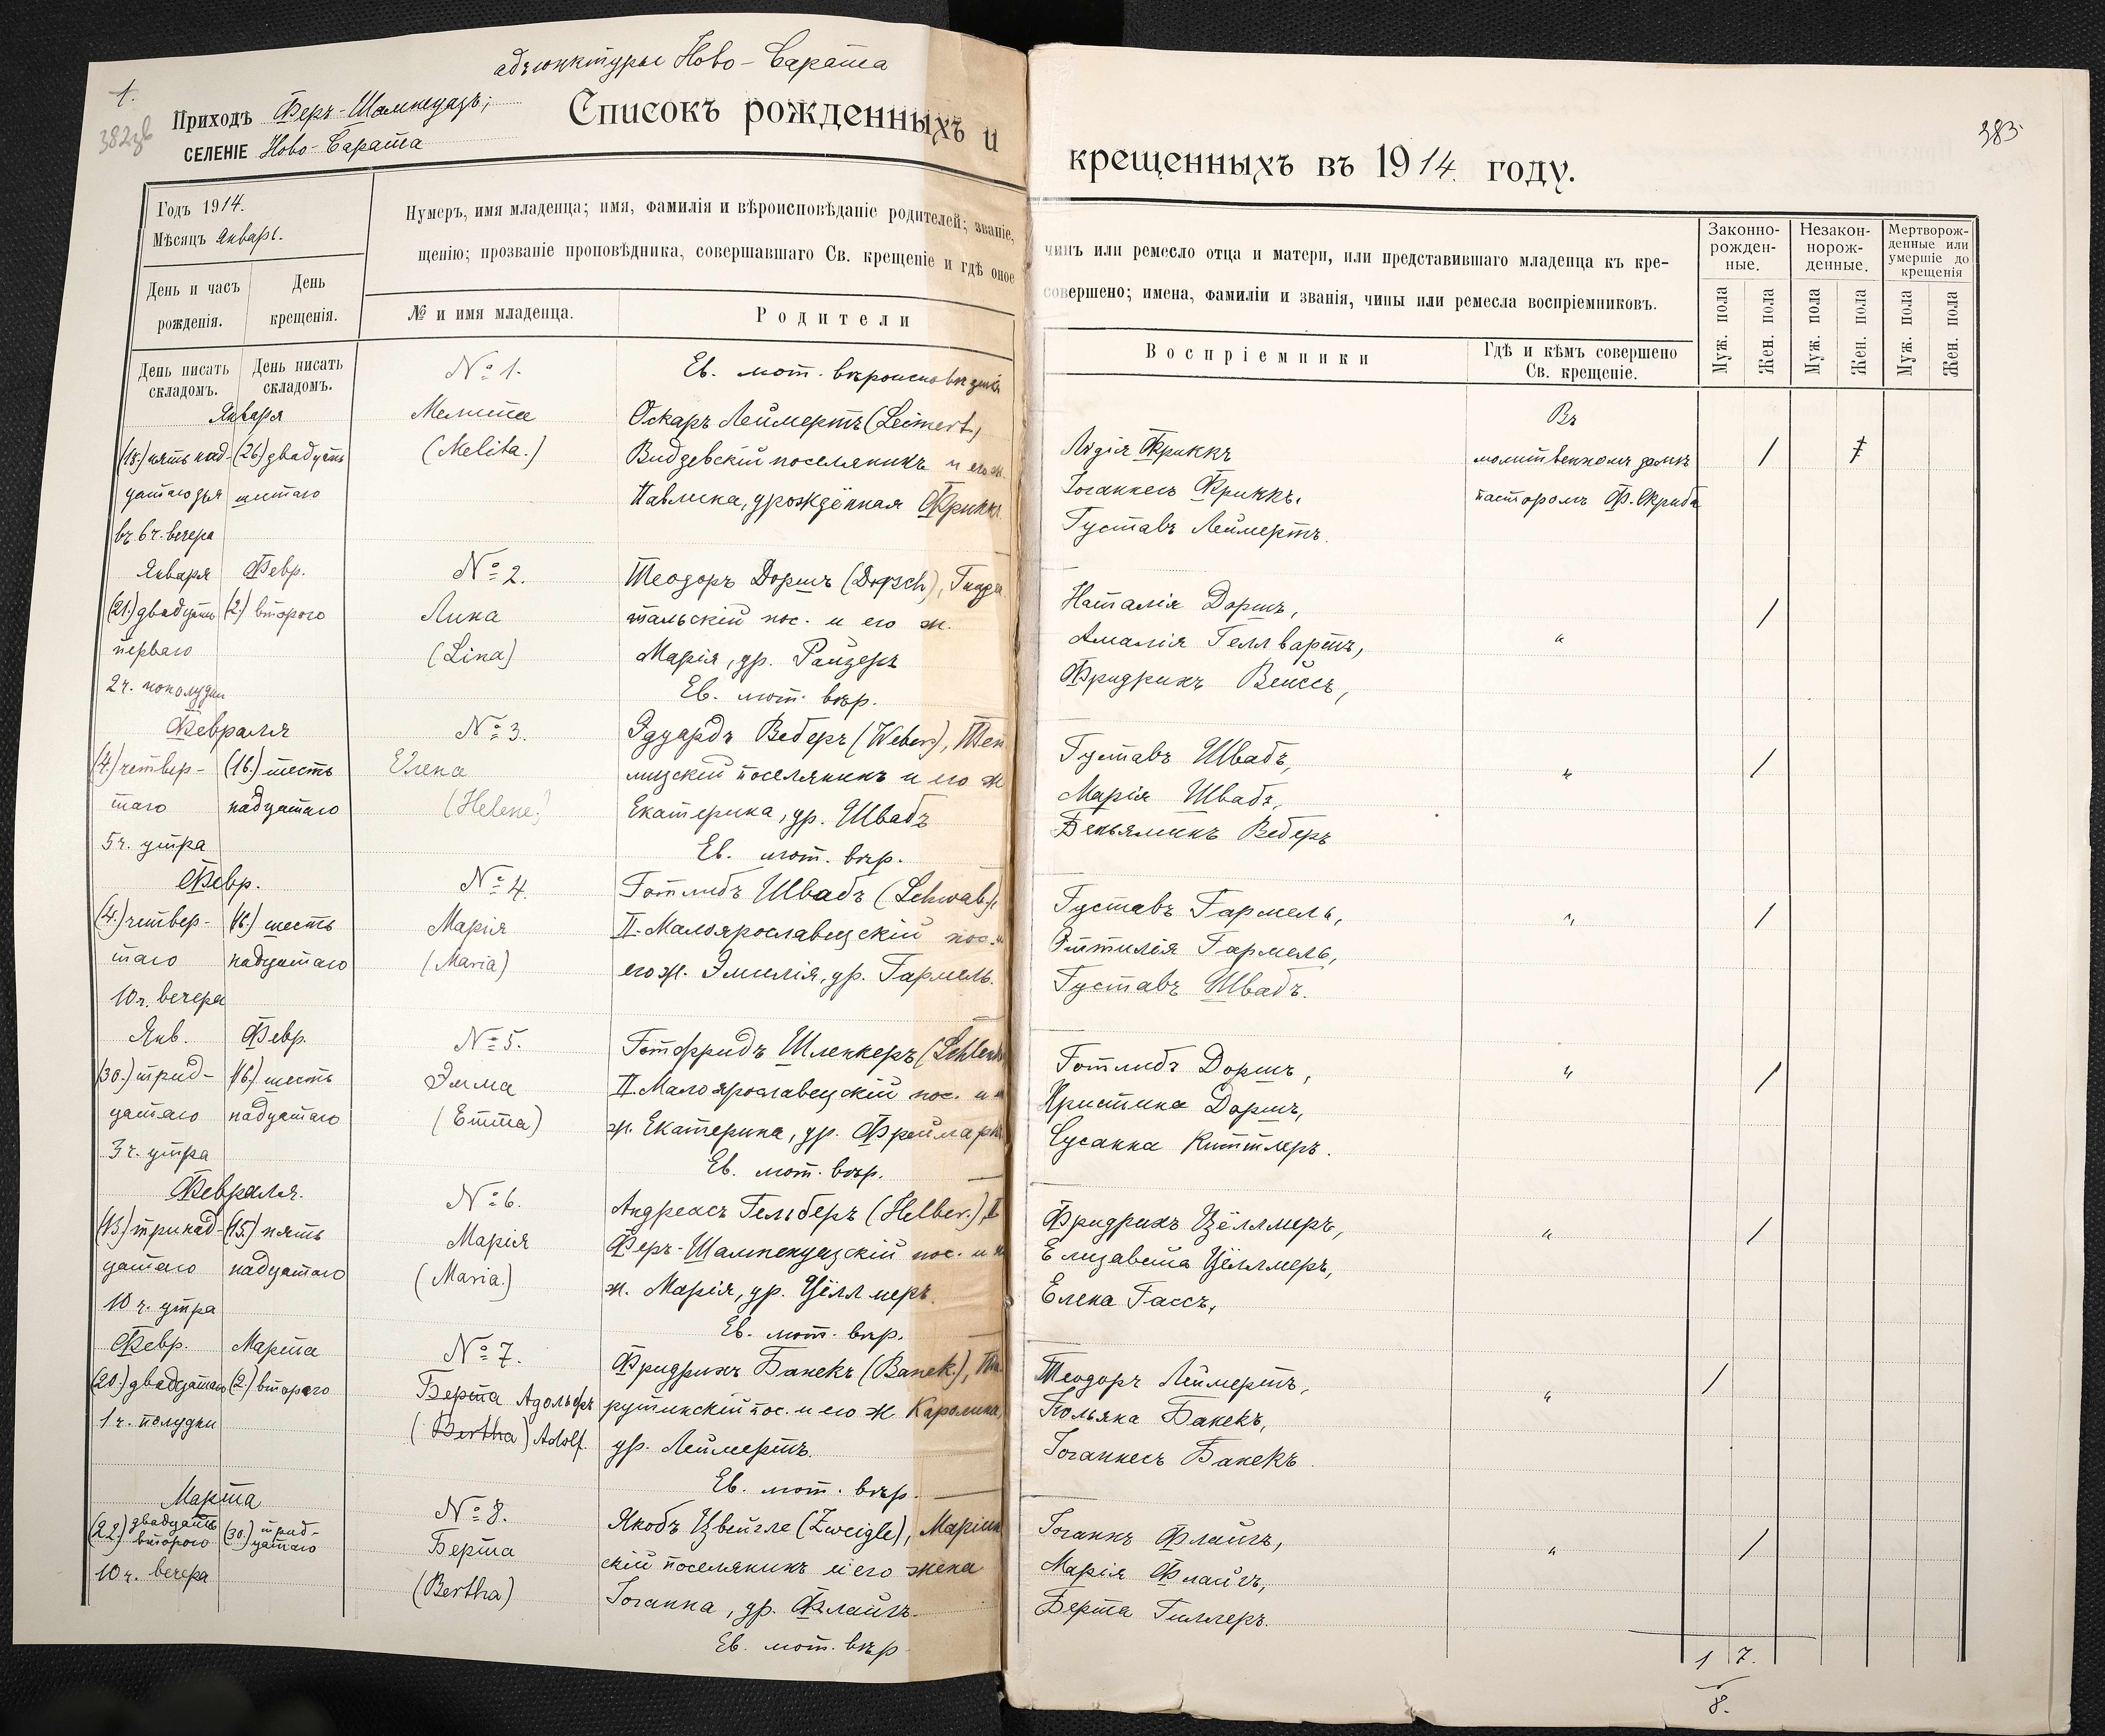 адъюнктуры Ново-Сарата
1.
Приходъ Феръ-Шампенуазъ;
СЕЛЕНІЕ Ново-Сарата
Списокъ рожденныхъ и
крещенныхъ въ 1914 году.
383
Годъ 1914.
Мѣсяцъ Январь.
День и часъ рожденія.
День крещенія.
Нумеръ, имя младенца; имя, фамилія и вѣроисповѣданіе родителей; званіе,
чинъ или ремесло отца и матери, или представившаго младенца къ кре-
щенію; прозваніе проповѣдника, совершавшаго Св. крещеніе и гдѣ оное
совершено; имена, фамиліи и званія, чины или ремесла воспріемниковъ.
№ и имя младенца.
Родители
Воспріемники
Гдѣ и кѣмъ совершено
Св. крещеніе.
Законно-
рожден-
ные.
Незакон-
норож-
денные.
Мертворож-
денные или
умершіе до
крещенія
Муж. пола
Жен. пола
Муж. пола
Жен. пола
Муж. пола
Жен. пола
День писать складомъ.
День писать складомъ.
Января
(15.) пятьнад-
цатаго дня
въ 6 ч. вечера
(26.) двадцать
шестаго
№ 1.
Мелита
(Melita.)
Ев. лют. вѣроисповѣданія
Оскаръ Леймертъ (Leimert)
Видзевскій поселянинъ и его ж.
Павлина, урождённая Фриккъ
Лидія Фриккъ
Іоганнесъ Фриккъ,
Густавъ Леймертъ.
Въ
молитвенномъ домѣ
пасторомъ Ф. Скриба
/
Января
(21.) двадцать
перваго
2 ч. пополудни
Февр.
(2.) второго
№ 2.
Лина
(Lina)
Теодоръ Доршъ (Dorsch), Гнада
тальскій пос. и его ж.
Марія, ур. Райзеръ
Ев. лют. вѣр.
Наталія Доршъ,
Амалія Геллвартъ,
Фридрихъ Вейссъ,
"
/
Февраля
(4.) четвер-
таго
5 ч. утра
(16.) шесть
надцатаго
№ 3.
Елена
(Helene.)
Эдуардъ Веберъ (Weber), Теп
лицскій поселянинъ и его ж
Екатерина, ур. Швабъ
Ев. лют. вѣр.
Густавъ Швабъ,
Марія Швабъ,
Беньяминъ Веберъ
"
/
Февр.
(4.) четвер-
таго
10 ч. вечера
(16.) шесть
надцатаго
№ 4.
Марія
(Maria)
Готлибъ Швабъ (Schwab),
II-Малоярославецскій пос. и
его ж. Эмилія, ур. Гармель.
Густавъ Гармель,
Оттилія Гармель,
Густавъ Швабъ.
"
/
Янв.
(30.) трид-
цатаго
3 ч. утра
Февр.
(16.) шесть
надцатаго
№ 5.
Эмма
(Emma)
Готфридъ Шленкеръ (Schlenk
II-Малоярославецскій пос. и
ж. Екатерина, ур. Фреймаркъ
Ев. лют. вѣр.
Готлибъ Доршъ,
Христина Доршъ,
Сусанна Киттлеръ.
"
/
Февраля.
(13.) тринад-
цатаго
10 ч. утра
(15.) пять
надцатаго
№ 6.
Марія
(Maria.)
Андреасъ Гельберъ (Helber.), I
Феръ-Шампенуазскій пос. и
ж. Марія, ур. Цёллмеръ.
Ев. лют. вѣр.
Фридрихъ Цёллмеръ,
Елизавета Цёллмеръ,
Елена Гассъ,
"
/
Февр.
(20.) двадцатаго
1 ч. полудни
Марта
(2.) второго
№ 7.
Берта Адольфъ
(Bertha) Adolf.
Фридрихъ Банекъ (Banek.), Та
рутинскій пос. и его ж. Каролина,
ур. Леймертъ.
Ев. лют. вѣр.
Теодоръ Леймертъ,
Юльяна Банекъ,
Іоганнесъ Банекъ.
"
/
Марта
(22.) двадцать
второго
10 ч. вечера
(30.) трид-
цатаго
№ 8.
Берта
(Bertha)
Якобъ Цвейгле (Zweigle), Маріин
скій поселянинъ и его жена
Іоганна, ур. Флайгъ.
Ев. лют. вѣр
Іоганнъ Флайгъ,
Марія Флайгъ,
Берта Гиллеръ.
"
/
1 7.
8.